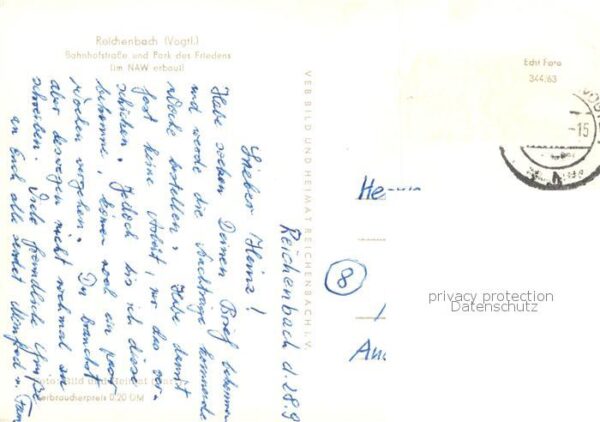 Reichenbach (Vogtl.)
Bahnhofstraße und Park des Friedens
(im NAW erbaut)
Echt Foto
344.63
VEB BILD UND HEIMAT REICHENBACH I. V.
Reichenbach d 28.9
Lieber Heinz!
Habe soeben Deinen Brief bekommen
und werde die Nachträge kommende
Woche bestellen. Habe damit
fast keine Arbeit, nur das
schicken. Jedoch bis ich diese
bekomme, können noch ein paar
Wochen vergehen. Du brauchst
aber deswegen nicht nochmal zu
schreiben. Viele freundliche Grüße
an Euch alle sendet Manfred u. Fam
8
privacy protection
Datenschutz
Verbraucherpreis 0,20 DM
-15